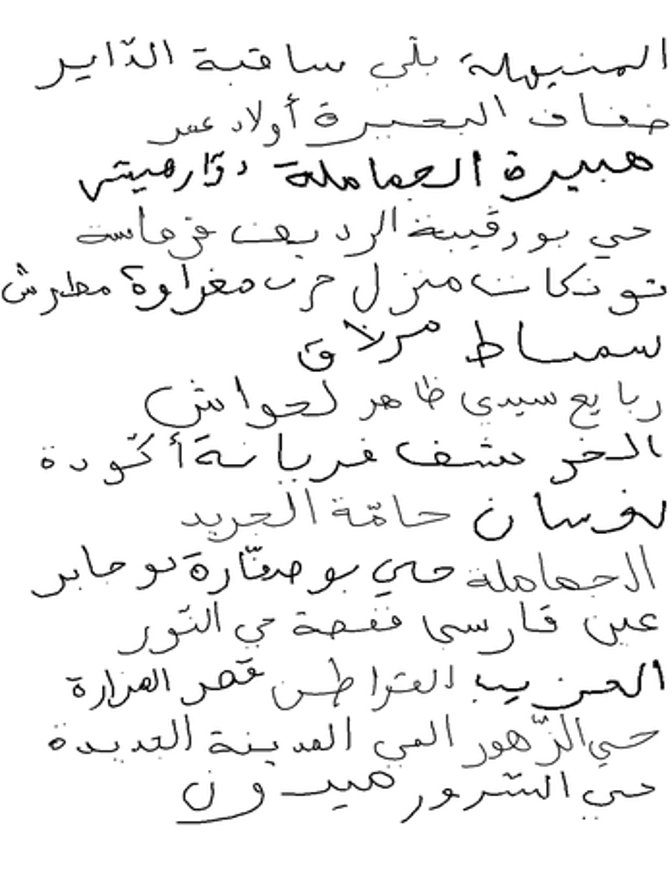 المنيهلة بلّي ساقية الدّاير
ضفاف البحيرة أولاد عمر
هبيرة الجماملة دوّار هيشر
حي بورقيبة الرديف قرماسة
تونكات منزل حرب مغراوة مطرش
سمساط مرلاق
ربايع سيدي ظاهر لحواش
الخرشف فريانة أكّودة
نفوسان حامّة الجريد
الجماملة حي بوصفّارة بوجابر
عين قارسي قفصة حي النّور
العزيب القراطن قصر المزارة
حي الزّهور الحي المدينة الجديدة
حي السّرور ميدون